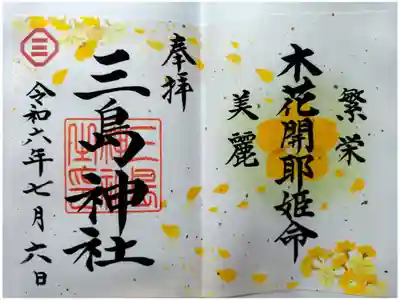 繁栄
木花開耶姫命
美麗
奉拝
三島神社
令和六年七月六日